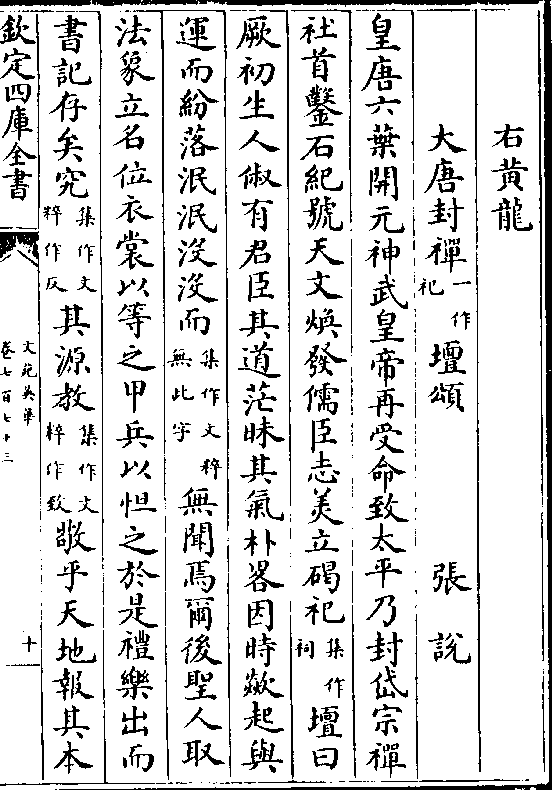 右黄龍
大唐封禪一作祀壇頌 張說
皇唐六葉開元神武皇帝再受命致太平乃封岱宗禪
社首鑿石紀號天文煥發儒臣志美立碣祀集作祠壇曰
厥初生人俶有君臣其道茫昧其氣朴畧因時歘起與
運而紛落泯泯沒沒而集作文粹無此字無聞焉爾後聖人取
法象立名位衣裳以等之甲兵以怛之於是禮樂出而
書記存矣究集作文粹作反其源教集作文粹作致敬乎天地報其本
欽定四庫全書
文苑英華
卷七百七十三
十